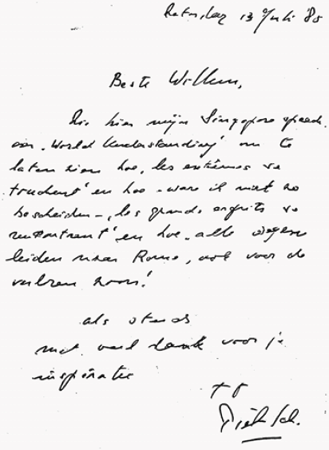 Saturday 13 Juli 85
Beste Willem,
Zie hier mijn Singapore speech
over "World Understanding" om te
laten zien hoe, les extrêmes se
touchent" en hoe - ware ik niet zo
bescheiden -, les grands esprits se
rencontrent" en hoe - alle wegen
leiden naar Rome, ook voor de
verloren zoon!
als steeds
met veel dank voor je
inspiratie